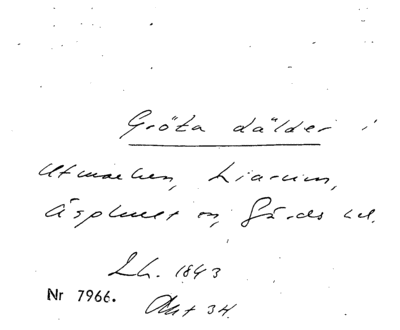 Gröta dälder i
Utmarken, Liarum,
Äsphult sn, Gärds hd.
Lh. 1843
Nr 7966.
Akt 34.